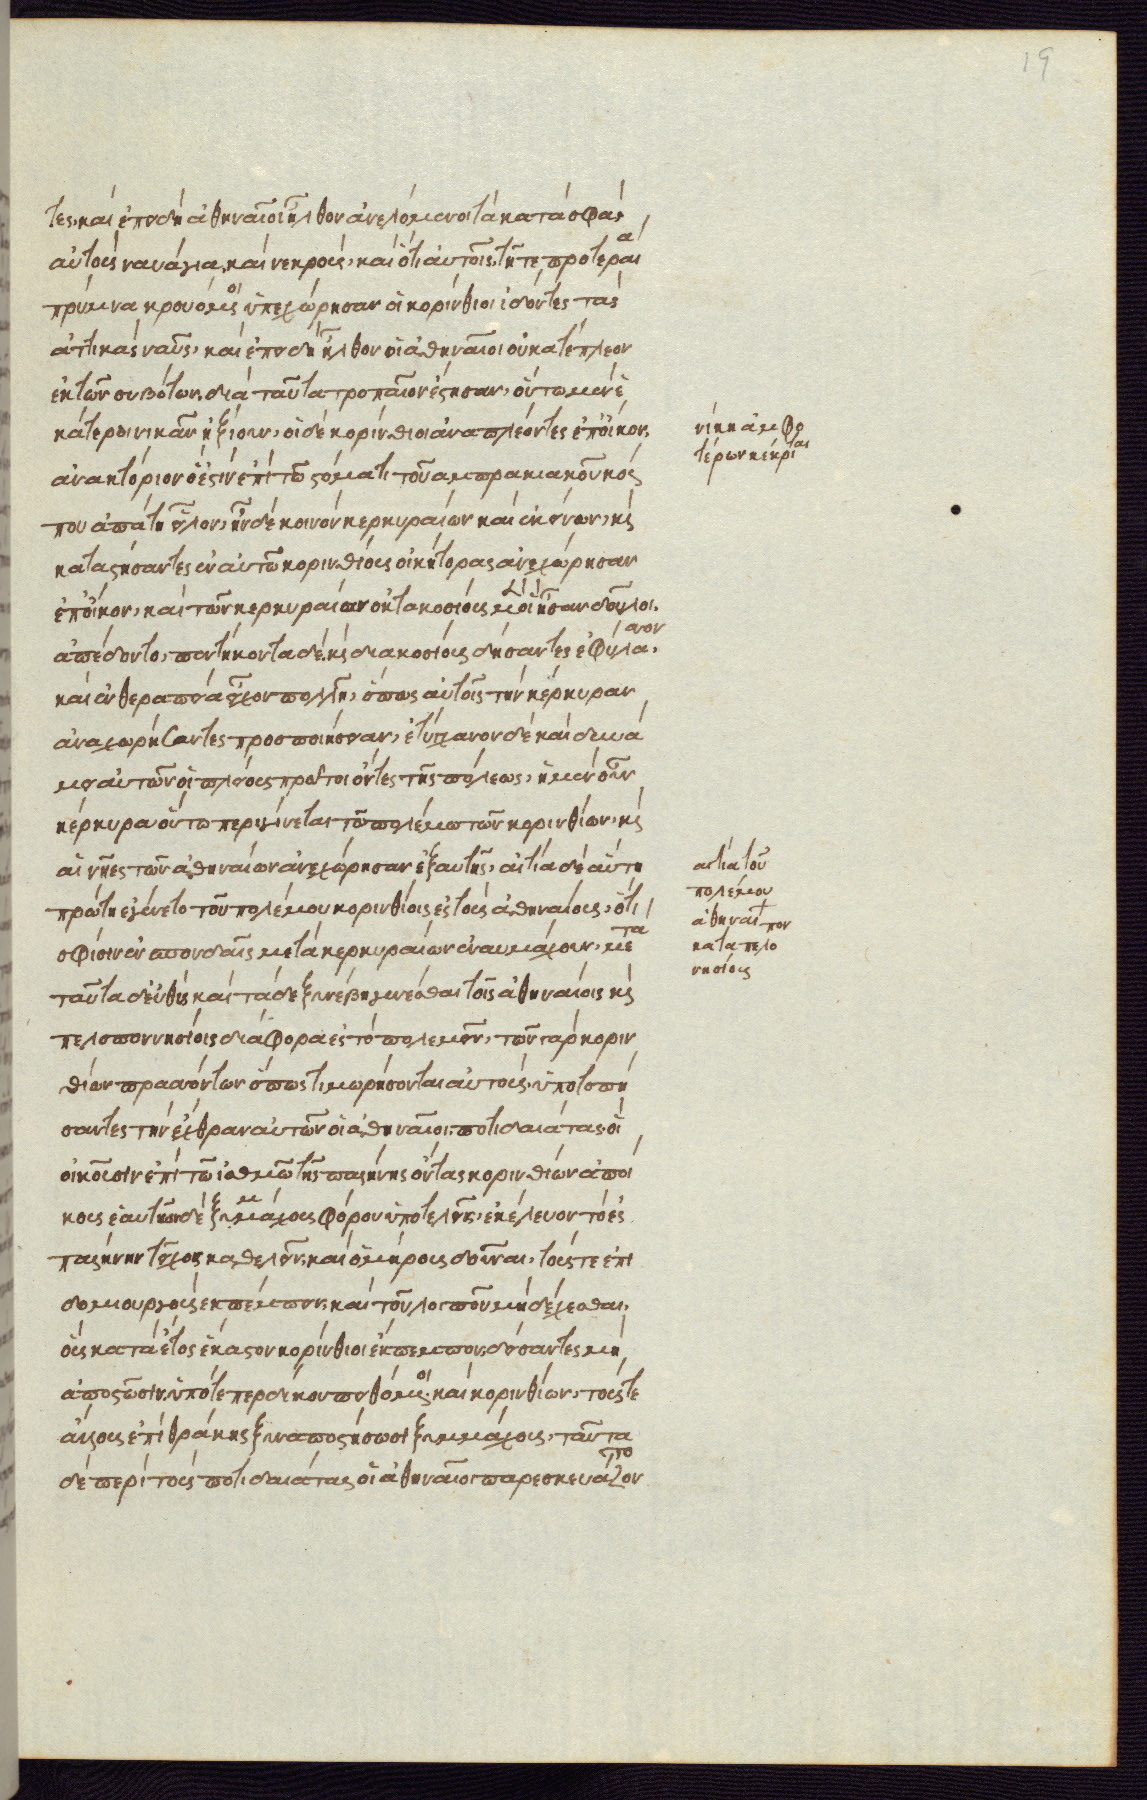 19
τες, καὶ ἐπειδὴ ἀθηναῖοι ἦλθον ἀνελόμενοι τὰ κατὰ σφᾶς
αὐτοὺς ναυάγια, καὶ νεκροὺς, καὶ ὅτι αὐτοῖς, τῆ τε προτεραία
πρύμναν κρουόμενοι ὑπεχώρησαν οἱ κορίνθιοι ἰδόντες τὰς
ἀττικὰς ναῦς, καὶ ἐπειδὴ ἦλθον οἱ ἀθηναῖοι οὐκ ἀντέπλεον
ἐκ τῶν συβότων, διὰ ταῦτα τροπαῖον ἔστησαν, οὕτω μὲν ἑ
κάτεροι νικᾶν ἠξίουν, οἱ δὲ κορίνθιοι ἀναπλέοντες ἐπ' οἴκου,
ἀνακτόριον ὅ ἐστιν ἐπὶ τῶ στόματι τοῦ ἀμπρακικοῦ κόλ
που ἀπάτη εἷλον, ἦν δὲ κοινὸν κερκυραίων καὶ ἐκείνων, καὶ
καταστήσαντες ἐν αὐτῶ κορινθίους οἰκήτορας ἀνεχώρησαν
ἐπ' οἴκου, καὶ τῶν κερκυραίων ὀκτακοσίους μὲν οἳ ἦσαν δοῦλοι.
ἀπέδοντο, πεντήκοντα δὲ καὶ διακοσίους δήσαντες ἐφύλασσον,
καὶ ἐν θεραπεία εἶχον πολλῆ, ὅπως αὐτοῖς τὴν κέρκυραν
ἀναχωρήσαντες προσποιήσειαν, ἐτύγχανον δὲ καὶ δυνά
μει αὐτῶν οἱ πλείους πρῶτοι ὄντες τῆς πόλεως, ἡ μὲν οὖν
κέρκυρα οὕτω περιγίνεται τῶ πολέμω τῶν κορινθίων, καὶ
αἱ νῆες τῶν ἀθηναίων ἀνεχώρησαν ἐξ αὐτῆς, αἰτία δὲ αὕτη
πρώτη ἐγένετο τοῦ πολέμου κορινθίοις ἐς τοὺς ἀθηναίους, ὅτι
σφίσιν ἐν σπονδαῖς μετὰ κερκυραίων ἐναυμάχουν, μετὰ
ταῦτα δ' εὐθὺς καὶ τάδε ξυνέβη γενέσθαι τοῖς ἀθηναίοις καὶ
πελοποννησίοις διάφορα ἐς τὸ πολεμεῖν, τῶν γὰρ κοριν
θίων πρασσόντων ὅπως τιμωρήσονται αὐτοὺς, ὑποτοπή
σαντες τὴν ἔχθραν αὐτῶν οἱ ἀθηναῖοι, ποτιδαιάτας, οἳ
οἰκοῦσιν ἐπὶ τῶ ἰσθμῶ τῆς παλλήνης ὄντας κορινθίων ἀποί
κους ἑαυτῶν δὲ ξυμμάχους φόρου ὑποτελεῖς, ἐκέλευον τὸ ἐς
παλλήνην τεῖχος καθελεῖν, καὶ ὁμήρους δοῦναι, τούς τε ἐπι
δημιουργοὺς ἐκπέμπειν, καὶ τοῦ λοιποῦ μὴ δέχεσθαι,
οὓς κατὰ ἔτος ἕκαστον κορίνθιοι ἔπεμπον, δείσαντες μὴ
ἀποστῶσιν, ὑπό τε περδίκκου πειθόμενοι, καὶ κορινθίων, τούς τε
ἄλλους ἐπὶ θράκης ξυναποστήσωσι ξυμμάχους, ταῦτα
δὲ περὶ τοὺς ποτιδαιάτας οἱ ἀθηναῖοι παρεσκευάζον
νίκη ἀμφο
τέρων κέκριται
αἰτία τοῦ
πολέμου
ἀθηναί
κατὰ πελο
νησίοις